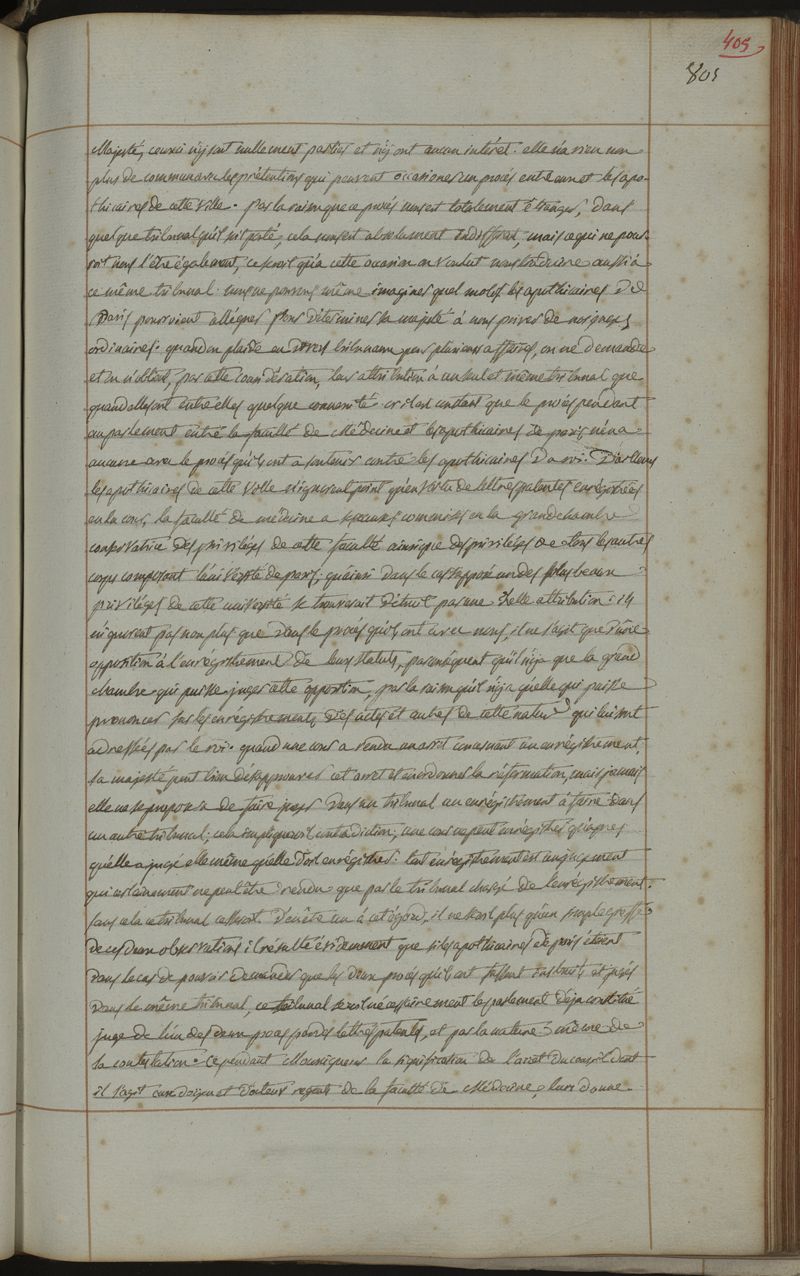 405
805
Majesté, ceux ci n'y sont nullement parties et n'y ont aucun intéret. elle n'a rien non
plus de commun avec les prétentions qui peuvent occasioner un procès entre eux et les apo-
thicaires de cette ville. par la raison que ce procès nous est totalement étranger, dans
quelque tribunal qu'il soit porté, cela nous est absolument indifférent, mais ce qui ne pour-
roit nous l'être également, ce seroit qu'à cette occasion on voulut nous traduire aussi à
ce même tribunal. nous ne pouvons même imaginer quel motif les apothicaires de
Paris pourroient alléguer pour déterminer sa majesté à nous priver de nos juges
ordinaires. quand on plaide en divers tribunaux pour plusieurs affaires, on ne demande
et on n'obtient, par cette considération, leur attribution à un seul et même tribunal que
quand elles ont entre elles quelque connexité. or il est constant que le procès pendant
au parlement entre la faculté de Médecine et les apothicaires de paris n'en a
aucune avec le procès qu'ils ont à soutenir contre les apothicaires du roi. D'ailleurs
les apothicaires de cette Ville n'ignorent point qu'en vertu de lettres patentes enregistrées
en la cour, la faculté de médecine a ses causes commises en la grand chambre
conservatrice des privilèges de cette faculté ainsi que des privilèges de tous les autres
corps composant l'université de paris; qu'ainsi dans le cas supposé un des plus beaux
privilèges de cette université se trouveroit détruit par une telle attribution: ils
n'ignorent pas non plus que dans le procès qu'ils ont avec nous, il ne s'agit que d'une
opposition à l'enregistrement de leurs statuts, par conséquent qu'il n'y a que la grand
chambre qui puisse juger cette opposition, par la raison qu'il n'y a qu'elle qui puisse
prononcer sur les enregistrements d'édits et autres de cette nature qui lui sont
adressées par le roi. quand une cour a rendu un arrêt concernant un enregistrement,
sa majesté peut bien désapprouver cet arret et en ordonner la réformation, mais jamais
elle ne se proposera de faire juger dans un tribunal un enregistrement à faire dans
un autre tribunal; cela impliqueroit contradiction, une cour ne peut enregistrer qu'après
qu'elle a jugé elle même qu'elle doit enregistrer: tout enregistrement est un jugement
qui certainement ne peut être rendu que par le tribunal chargé de l'enregistrement.
sans cela ce tribunal cesseroit d'en être un à cet égard, il ne seroit plus qu'un simple greffe
de ces deux observations il résulte évidemment que si les apothicaires de paris étoient
dans le cas de pouvoir demander que les deux procès qu'ils ont fussent instruits et jugés
dans le même tribunal, ce tribunal seroit nécessairement le parlement déja constitué
juge de l'un des deux procès par des lettres patentes, et par la nature même de
la contestation. Cependant Monseigneur la signification de l'arrêt du conseil dont
il s'agit aux doyen et docteurs regents de la faculté de Médecine, leur donne